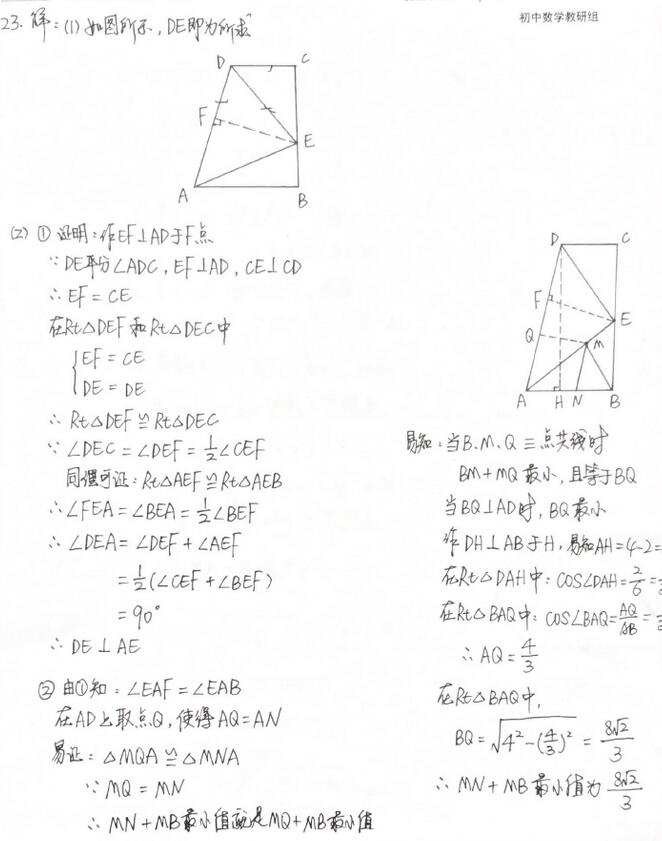 初中数学教研组
23. 解：(1) 如图所示，DE即为所求
D
C
F
E
A
B
(2) ① 证明：作EF⊥AD于F点
∵ DE平分∠ADC，EF⊥AD，CE⊥CD
∴ EF = CE
在Rt△DEF和Rt△DEC中
{EF = CE
DE = DE
∴ Rt△DEF≌Rt△DEC
∵ ∠DEC = ∠DEF = 1/2∠CEF
同理可证：Rt△AEF≌Rt△AEB
∴ ∠FEA = ∠BEA = 1/2∠BEF
∴ ∠DEA = ∠DEF + ∠AEF
= 1/2(∠CEF + ∠BEF)
= 90°
∴ DE⊥AE
② 由①知：∠EAF = ∠EAB
在AD上取点Q，使得AQ = AN
易证：△MQA≌△MNA
∵ MQ = MN
∴ MN + MB最小值就是MQ + MB最小值
D
C
F
E
Q
M
A
H
N
B
易知：当B、M、Q三点共线时
BM + MQ最小，且等于BQ
当BQ⊥AD时，BQ最小
作DH⊥AB于H，易知AH = 4-2 =
在Rt△DAH中：COS∠DAH = 2/6 =
在Rt△BAQ中：COS∠BAQ = AQ/AB =
∴ AQ = 4/3
在Rt△BAQ中，
BQ = √(4² - (4/3)²) = 8√2/3
∴ MN + MB最小值为 8√2/3